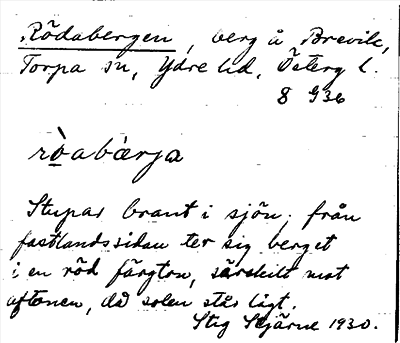 Rödabergen, berg å Brevik,
Torpa sn, Ydre hd, Österg l.
8 G36
ròabærja
Stupar brant i sjön; från
fastlandssidan ter sig berget
i en röd färgton, särskilt mot
aftonen, då solen står lågt.
Stig Stjärne 1930.